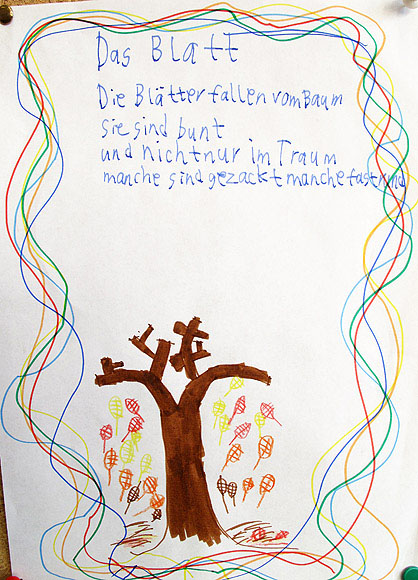 Das Blatt
Die Blätter fallen vom Baum
sie sind bunt
und nicht nur im Traum
manche sind gezackt manche fast rund